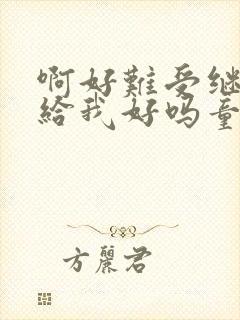 啊好難受继
給我好吗童
方麗君